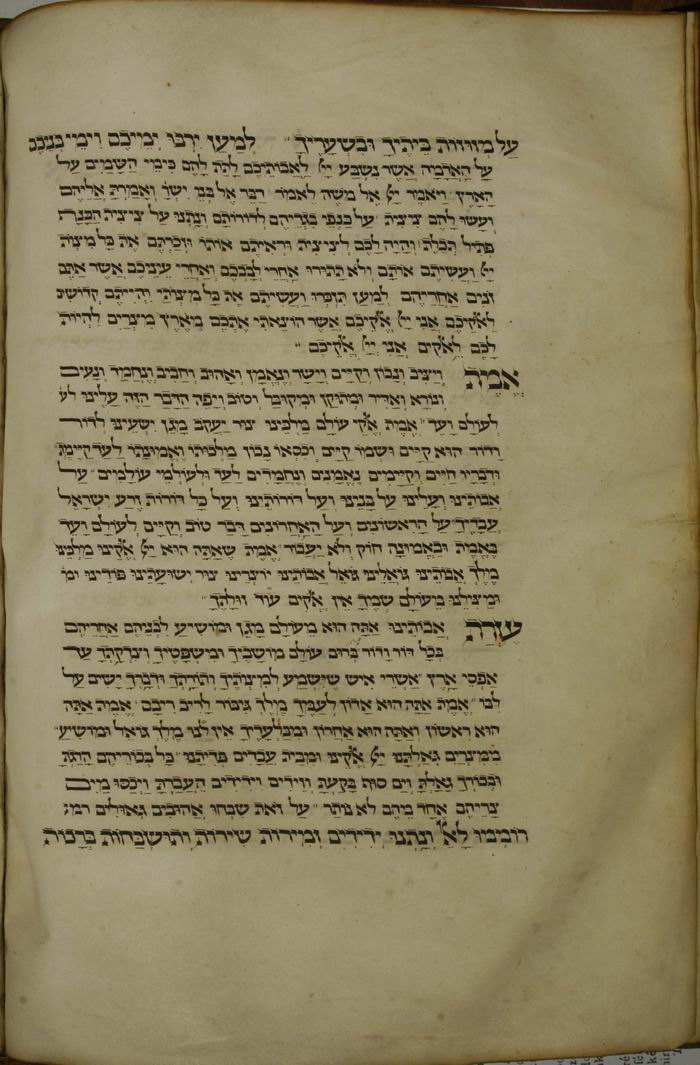 על מזוזות ביתיך ובשעריך למען ירבו ימיכם וימי בניכם
על האדמה אשר נשבע ייי לאבותיכם לתת להם כימי השמים על
הארץ ויאמר ייי אל משה לאמר דבר אל בני ישר ואמרת אליהם
ועשו להם ציצית על כנפי בגדיהם לדורותם ונתנו על ציצית הכנף
פתיל תכלת והיה לכם לציצית וראיתם אותו וזכרתם את כל מיצות
ייי ועשיתם אותם ולא תתורו אחרי לבבכם ואחרי עיניכם אשר אתם
זונים אחריהם למען תזכרו ועשיתם את כל מיצותי והייתם קדושים
לאקיכם אני ייי אקיכם אשר הוצאתי אתכם מארץ מיצרים להיות
לכם לאקים אני ייי אקיכם
אמת ויציב ונכון וקיים וישר ונאמן ואהוב וחביב ונחמד ונעים
ונורא ואדיר ומתוקן ומקובל וטוב ויפה הדבר הזה עלינו לע
לעולם ועד אמת אקי עולם מלכינו צור יעקב מגן ישעינו לדור
ודור הוא קיים ושמו קיים וכסאו נכון ומלכותו ואמונתו לעד קיימת
ודבריו חיים וקיימים נאמנים ונחמדים לעד ולעולמי עולמים על
אבותינו ועלינו על בנינו ועל דורותינו ועל כל דורות זרע ישראל
עבדיך על הראשונים ועל האחרונים דבר טוב וקיים לעולם ועד
באמת ובאמונה חוק ולא יעבור אמת שאתה הוא ייי אקינו מלכינו
מלך אבותינו גואלינו גואל אבותינו יוצרינו צור ישועתינו פודינו ומ
ומצילנו מעולם שמך אין אקים עוד זולתך
עזרת אבותינו אתה הוא מעולם מגן ומושיע לבניהם אחריהם
בכל דור ודור ברום עולם מושביך ומשפטיך וצדקתך עד
אפסי ארץ אשרי איש שישמע למיצותיך ותורתך ודברך ישים על
לבו אמת אתה הוא אדון לעמך מלך גיבור לריב ריבם אמת אתה
הוא ראשון ואתה הוא אחרון ומבלעדיך אין לנו מלך גואל ומושיע
ממצרים גאלתנו ייי אקינו ומבית עבדים פדיתנו כל בכוריהם הרגת
ובכורך גאלת וים סוף בקעת וזידים וידידים העברת ויכסו מים
צריהם אחד מהם לא נותר על זאת שבחו אהובים
רוממו לאל ונתנו ידידים זמירות שירות ותושבחות ברכות